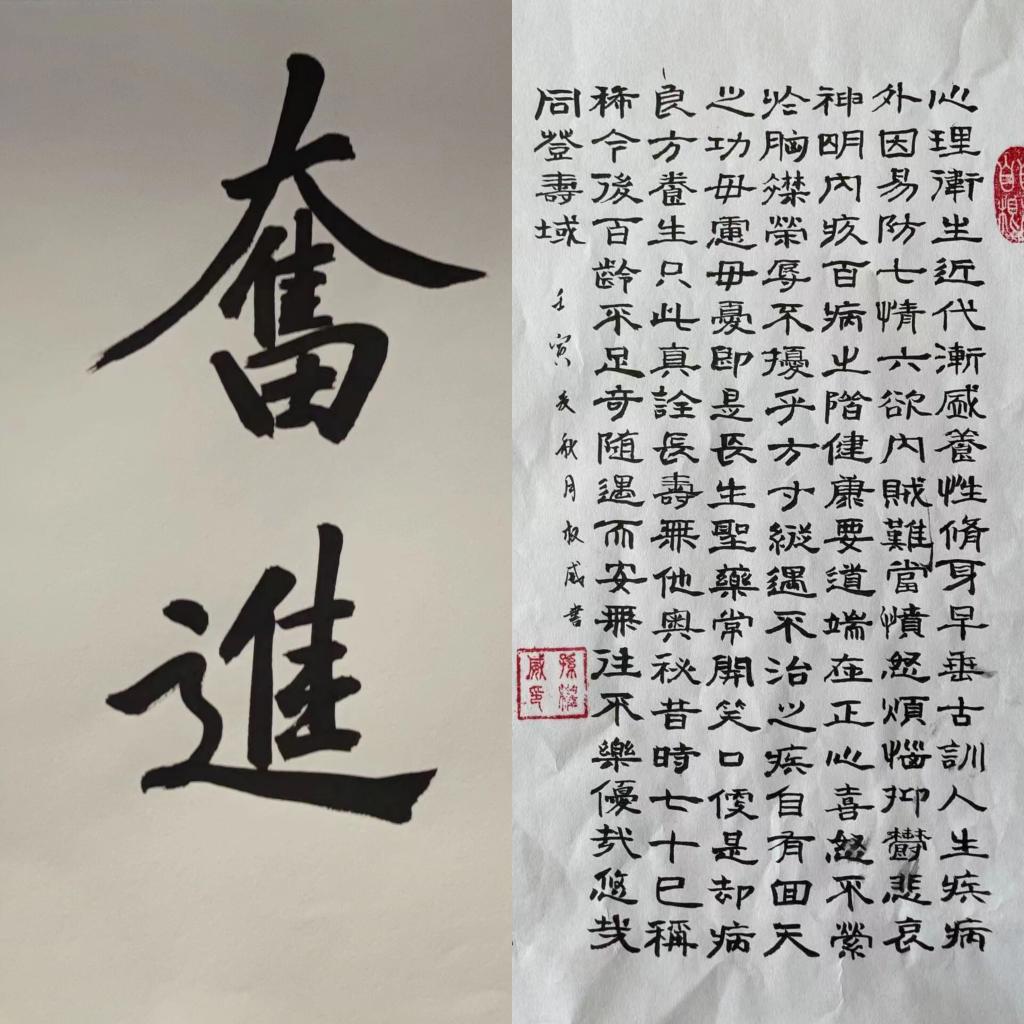 奮進
心理衛生近代漸盛養性脩身早垂古訓人生疾病
外因易防七情六欲內賊難當憤怒煩惱抑鬱悲哀
神明內疚百病之階健康要道端在正心喜怒不縈
於胸襟榮辱不擾乎方寸縱遇不治之疾自有回天
之功毋慮毋憂即是長生聖藥常開笑口便是却病
良方養生只此真詮長壽無他奧秘昔時七十已稱
稀今後百齡不足奇隨遇而安無往不樂優哉悠哉
同登壽域
壬寅年秋月权威書
孫權威印